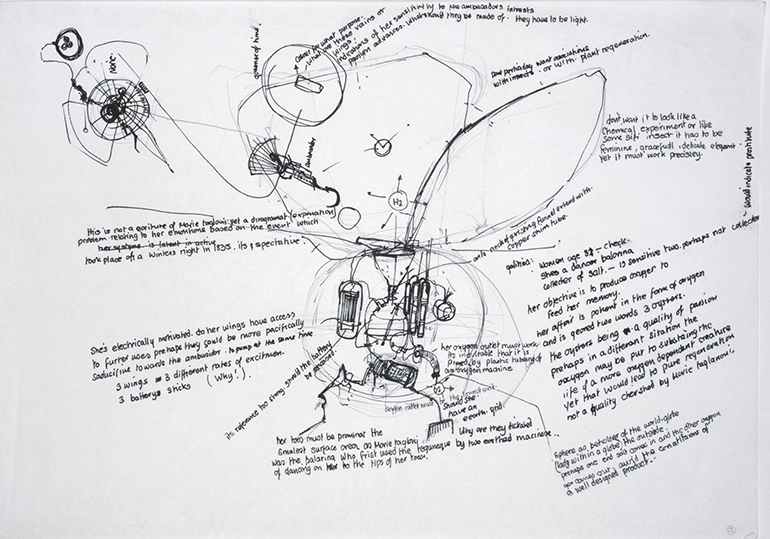 indications of her sensitivity to the ambasadors interests
passion advances. What should they be made of. they have to be light.
Colour for what purpose.
what are these vains or
wings.
opener of hind.
Nore
Ambasador
H2
Dont perticulay want associations
with insects. or with plant regeneration.
dont want it to look like a
Chemical experiment or like
some sifi insect it has to be
feminine, gracefull, delicate elegant
yet it must work precisley.
Would indicate prostitute
this is not a cariture of Marie Taglioni: yet a diagramat (expination)
problem relating to her emontions based on the event which
her systome is latent in active
took place of a winters right in 1835. its spectative.
neck of existing funnel extend with
copper shim tube.
qualities: Women age 32 - check.
Shes a dancer balarina
collector of salt. - is sensitive two. perhaps not collector
her objective is to produce oxygen to
feed her memory.
her affair is potent in the form of oxygen
and is geared two words 3 oysters.
the oysters being a quality of passion
perhaps in a different sitation the
oxygen may be put to substaing the
life of a more oxygen dependent creature
yet that would lead to pure regeneration
not a quality cherished by Marie taglianni.
She's electrically motivated. do her wings have access
to further uses perhaps they sould be more pacifically
towards the ambasidor. to pump at the same time
3 wings = 3 different rates of excitment.
3 batterys sticks (Why!)
its reference too strong should the battery
be exposed.
her oxygen outlet must work
its inevitable that it is
by plastic tubing of
an oxygen machine
oxygen outlet
Should she
have an
earth. grid.
Why are they tickled
by two earthed macinose..
her toes must be prominet the
Smalest surface area as Marie taglioni
was the balarina who frist used the tequneque
of dancing on to the tips of her toes.
Sphere as beholder of the world-globe
lady within a globe, the outside
perhaps one end salt comes in and the other oxygen
comes out. avoid the conotations of
a well designed product.